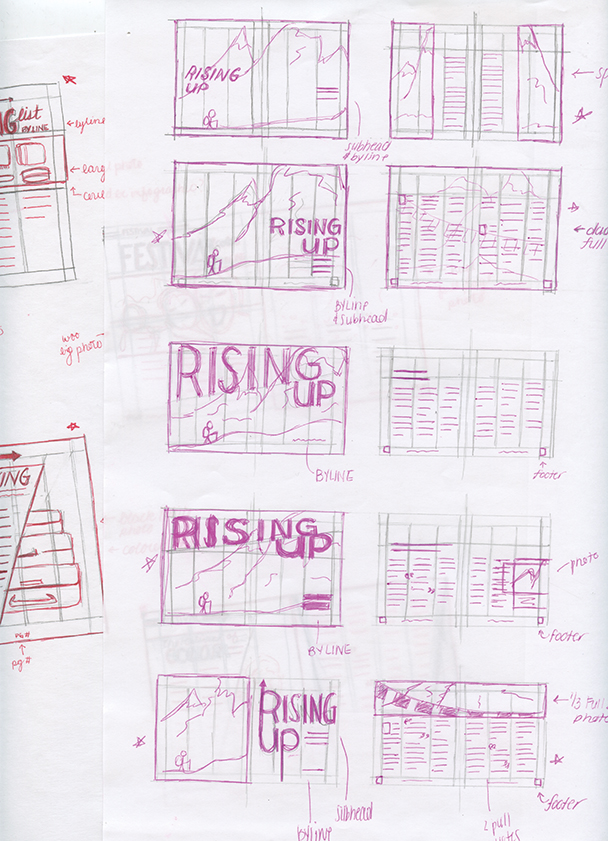 list
BYLINE
byline
large photo
woo
big photo
ING
PG #
pg #
RISING
UP
subhead
& byline
RISING
UP
BYLINE
& Subhead
full
RISING
UP
BYLINE
footer
RISING
UP
BYLINE
photo
footer
RISING
UP
Subhead
byline
1/3 Full
photo
footer
2 pull
FESTIVAL